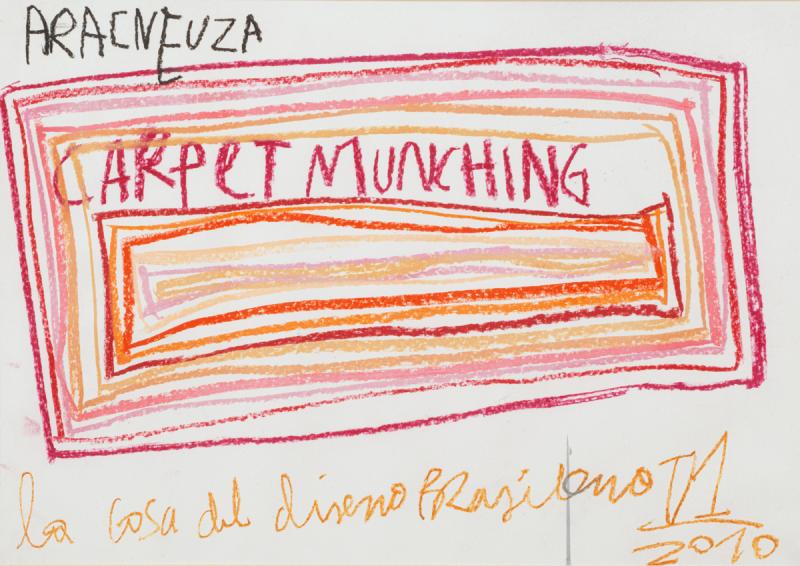 ARACNEUZA
CARPET MUNCHING
la cosa del diseno BRasileno TM
2010